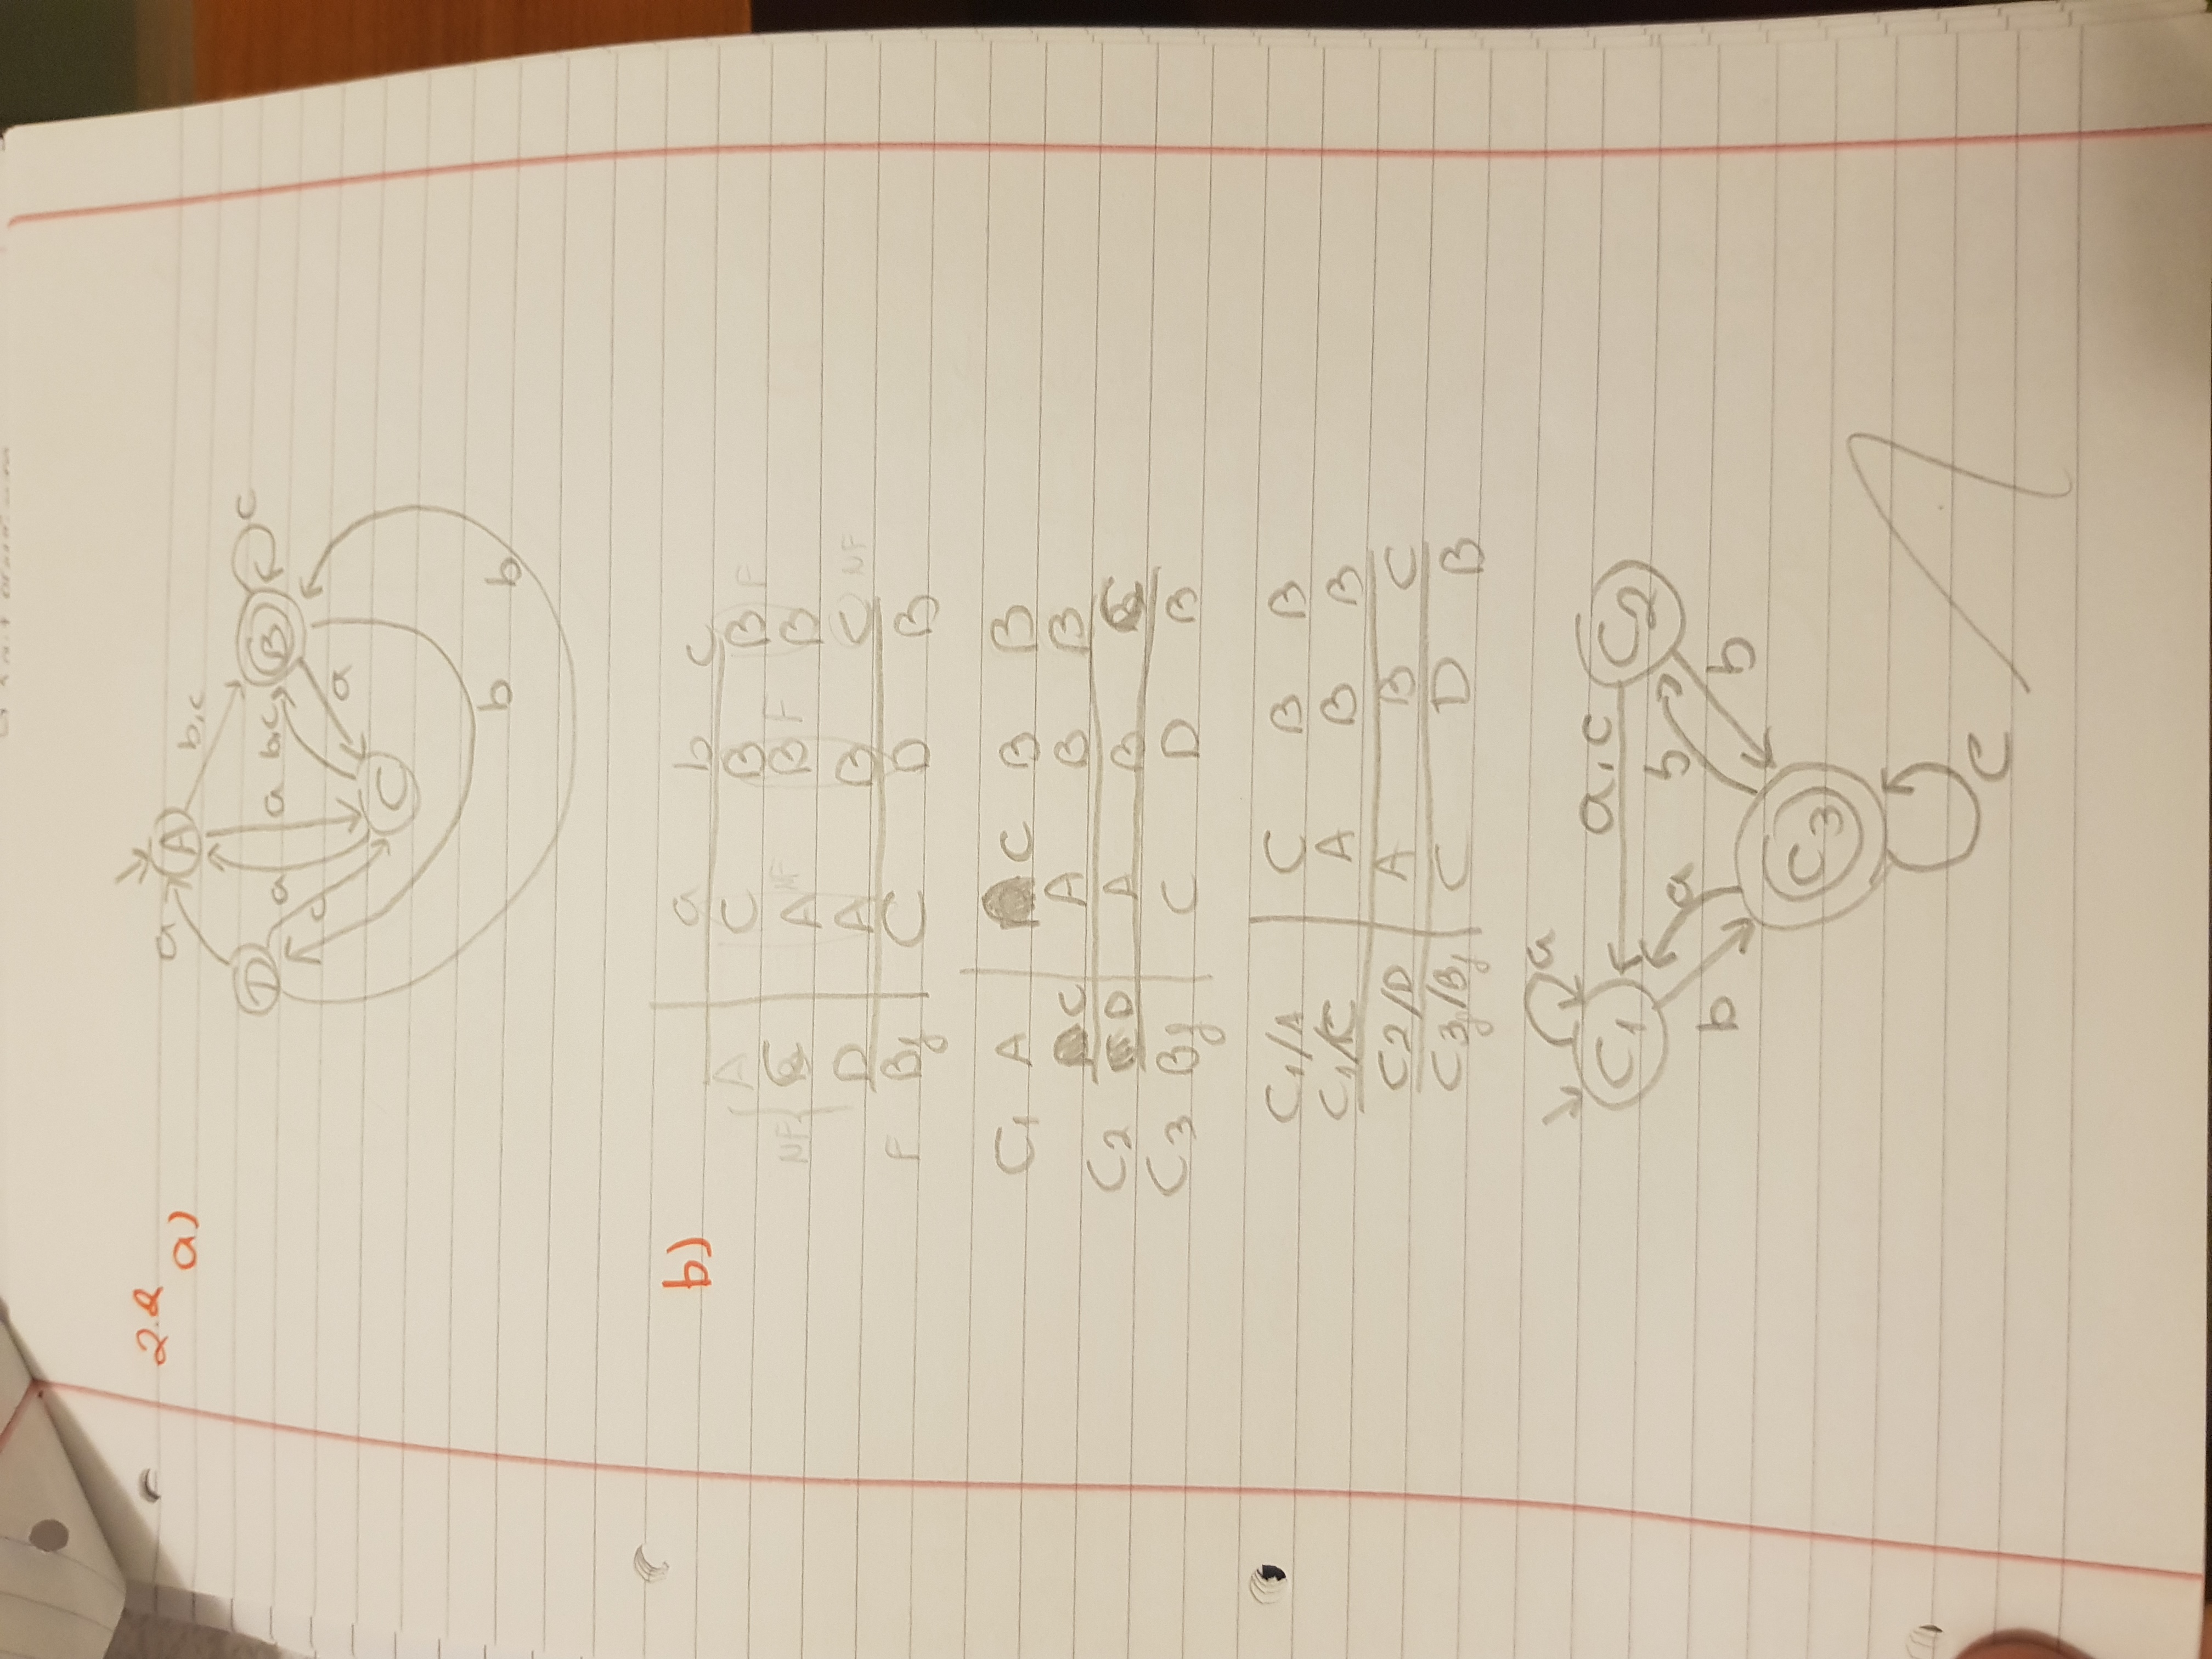 2.2
a)
a A b,c
D a a b,c B c
c a
C
b b
b)
a b c
A C B B F
NF C A NF B F B
D A B C NF
F Bf C D B
C1 A C B B
C A B B
C2 D A B C
C3 Bf C D B
C1/A C B B
C1/C A B B
C2/D A B C
C3f/Bf C D B
a
C1 a,c C2
b a b b
C3
c